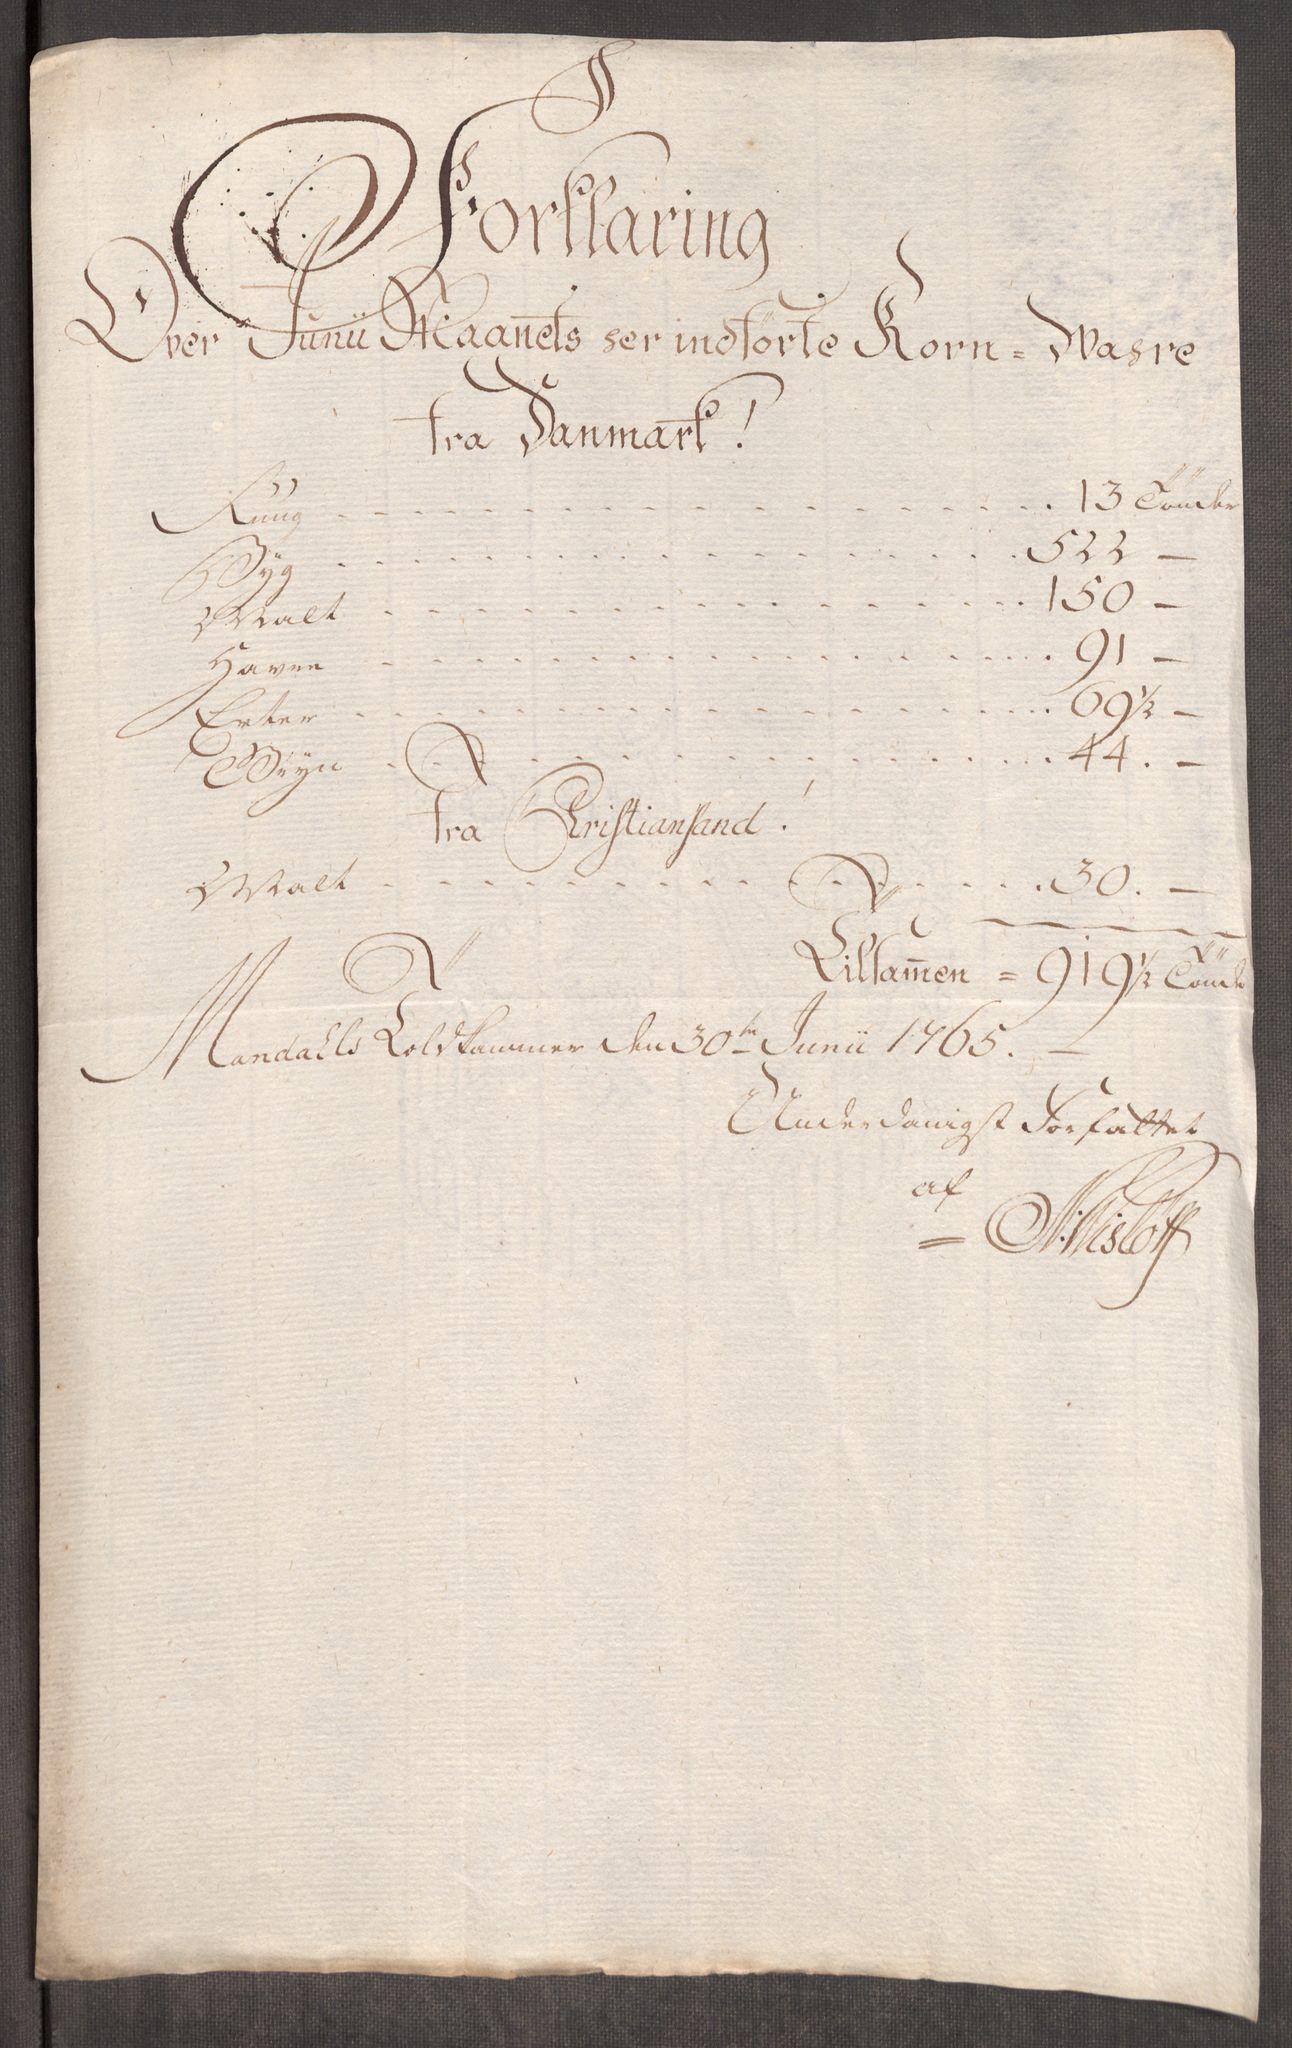 Forklaring
Over Junii Maanets her indførte Korn = Waere
fra Danmark!
Rug - - - 13 Tönder
Byg - - - 522 —
Malt - - - 150 —
Havre - - - 91 —
Erter - - - 69½ —
Gryn - - - 44. —
fra Christiansand!
Malt - - - 30. —
Tilsam̄en = 919½ Tönder
Mandahls Toldkammer den 30te Junii 1765. —
Underdanigst Forfattet
af